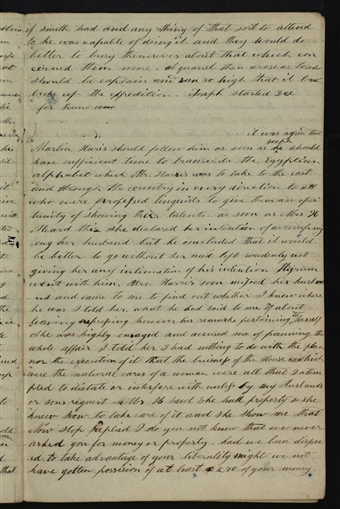 if smith had and any thing of that sort to attend
to he was capable of doing it and they would do
better to busy themselves about that which con
cerned them more. a quarrel then arose as to who
should be captain and ran so high that it
broke up the expedition. Joseph started Dec
for Penn
it was agreed that
Martin Harris should follow him as soon as he should
Joseph
have sufficient time to transcribe the Egyptian
alphabet which Mr. Harris was to take to the east
and through the country in every direction to all
who were professed linguists to give them an oppor
tunity of showing their talents as soon as Mrs. H
heard this she declared her intention of accompany
ing her husband but he concluded that it would
be better to go without her and left suddenly not
giving her any intimation of his intention Hyrum
went with him. Mrs. Harris soon missed her husba
nd and came to me to find out whether I knew where
he was I told her what he had said to me of about
leaving suppressing however his remarks pertaining to herself
she was highly enraged and accused me of planning the
whole affair I told her I had nothing to do with the plan
nor the execution of it that the business of the house which
were the natural cares of a woman were all that I attem
pted to dictate or interfere with unless by my Husbands
or sons request Mrs H said she had property & she
knew how to take care of it and she show me that
Now stop replied I do you not know that we never
asked you for money or property had we been dispos
ed to take advantage of your liberality might we not
have gotten possession of at least of your money